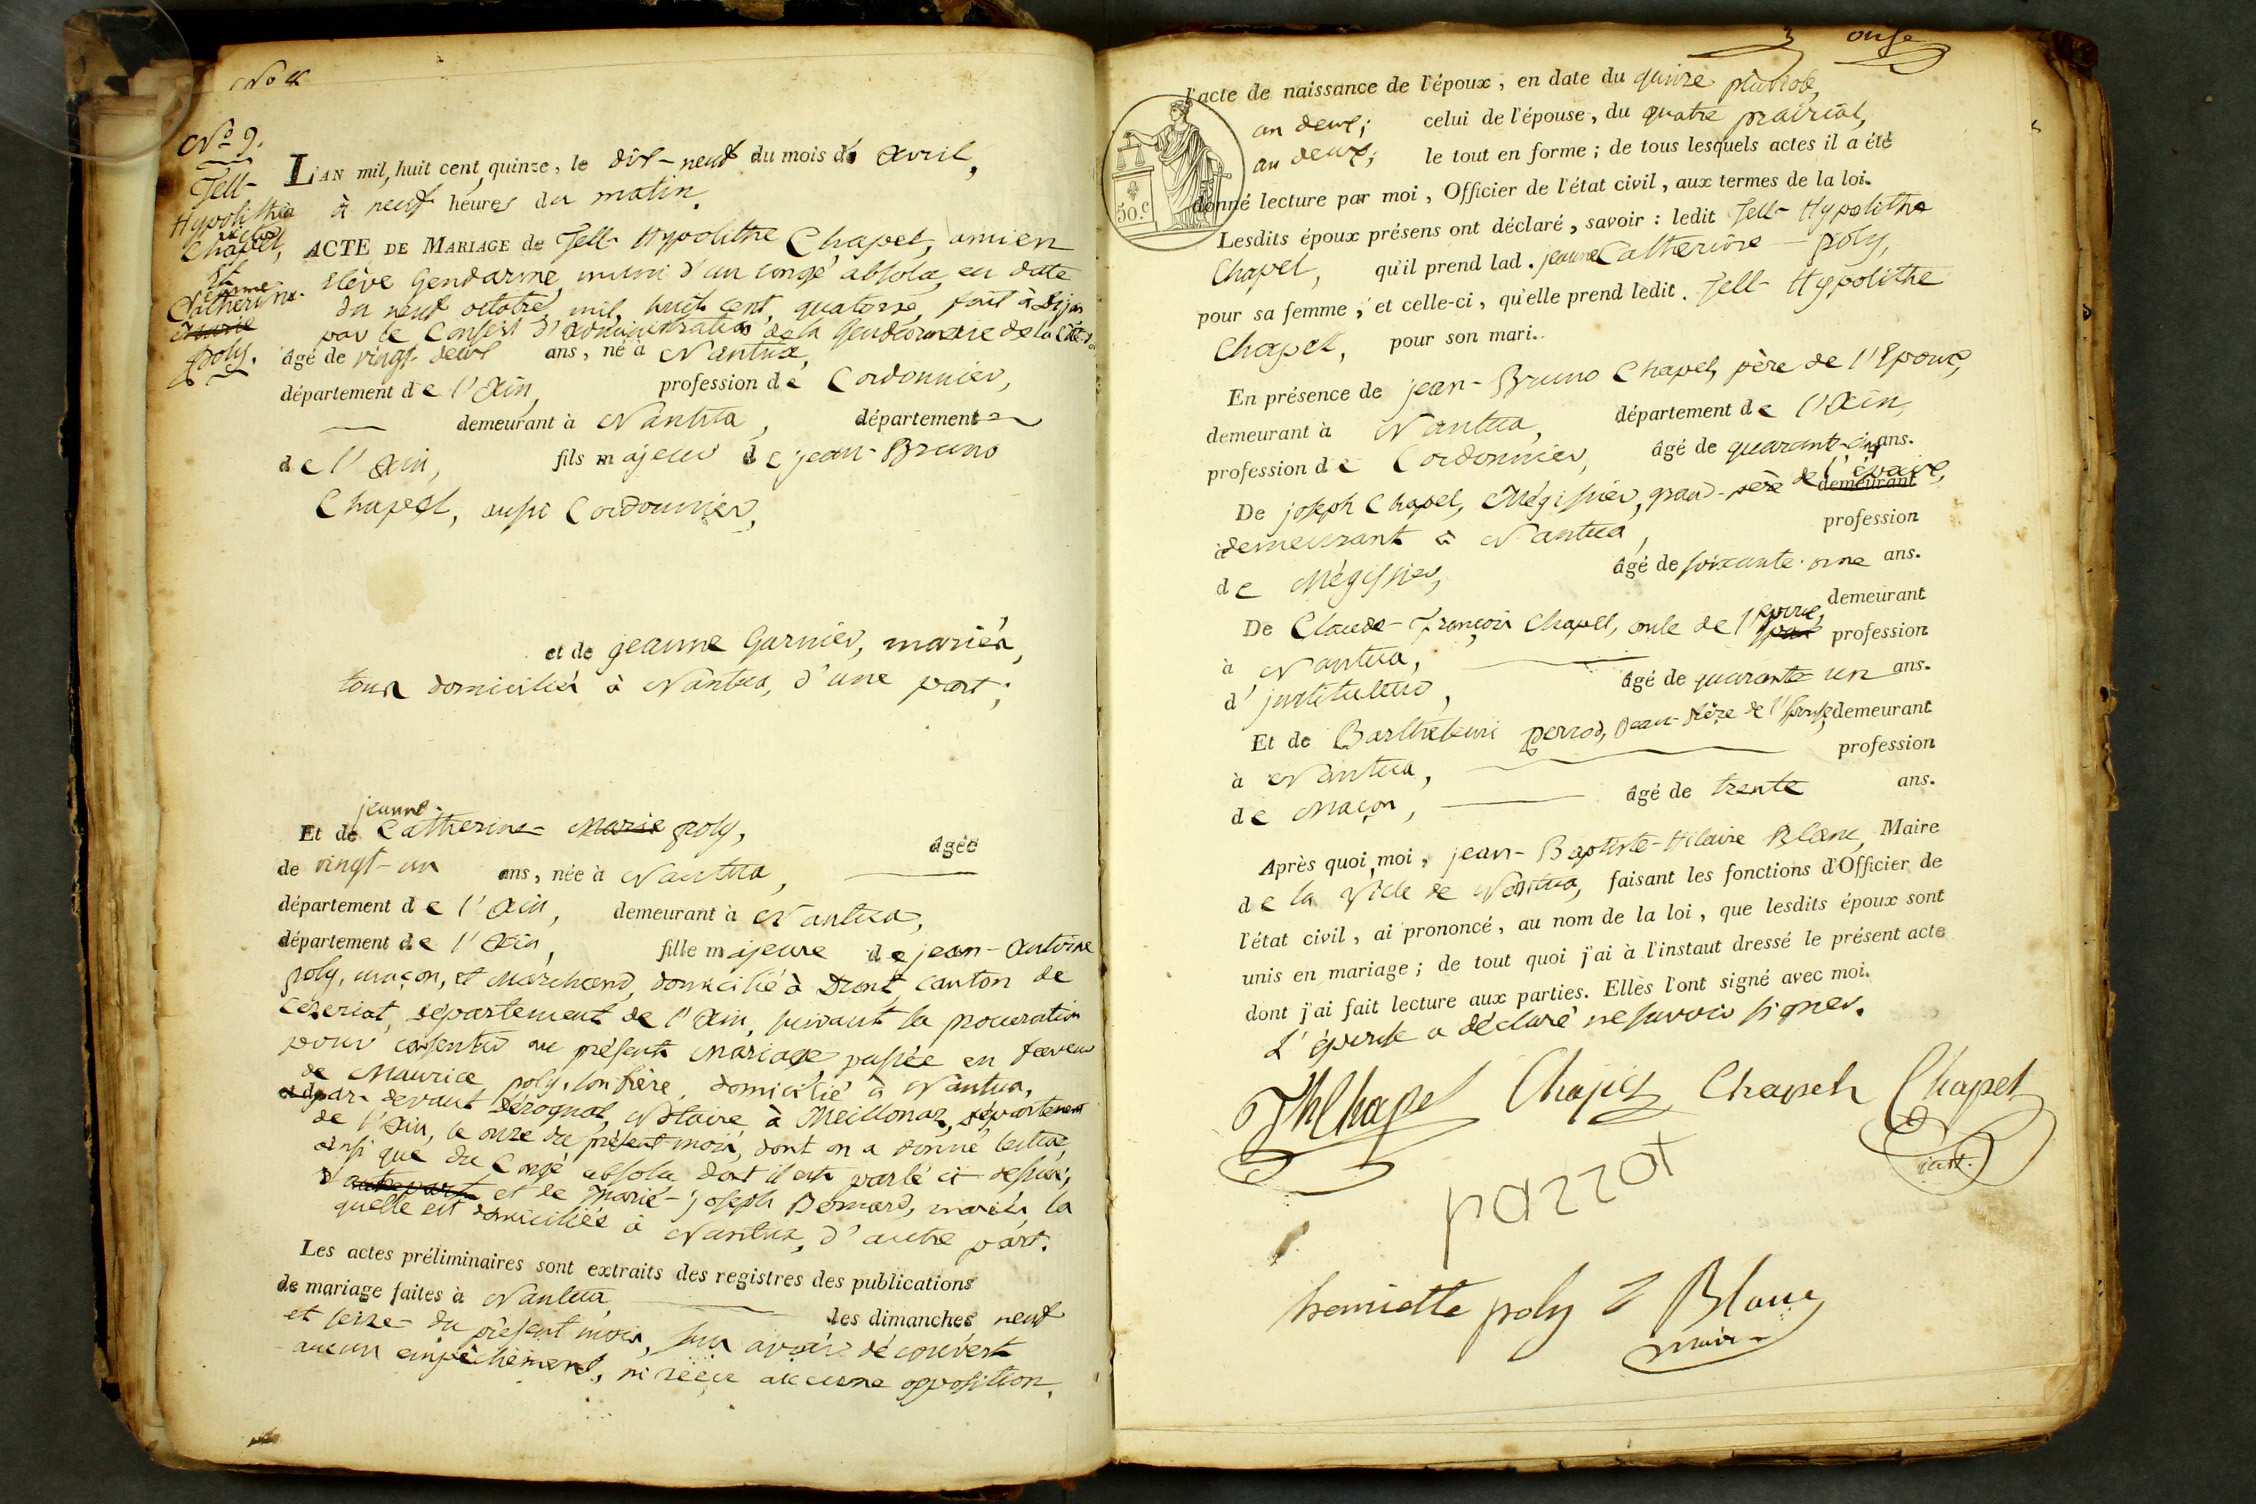 No 9.
Tell-
Hypolithe
Chapel,
et
jeanne
Catherine
Marie
poly.
L'AN mil, huit cent, quinze, le dix-neuf du mois de avril,
à neuf heures du matin.
ACTE DE MARIAGE de Tell-Hypolithe Chapel, ancien
élève Gendarme, muni d'un congé absolu, en date
du neuf octobre, mil, huit cent, quatorze, fait à Dijon
par le Conseil d'administration de la Gendarmerie de la
âgé de vingt-deux ans, né à Nantua,
département de l'Ain, profession de Cordonnier,
demeurant à Nantua, département
de l'Ain, fils majeur de jean-Bruno
Chapel, aussi Cordonnier,
et de jeanne Garnier, mariés,
tous domiciliés à Nantua, d'une part;
jeanne
Et de Catherine Marie poly, âgée
de vingt-un ans, née à Nantua,
département de l'Ain, demeurant à Nantua,
département de l'Ain, fille majeure de jean-Antoine
poly, maçon, et Marchand, domicilié à Dront, canton de
Cézeriat, département de l'Ain, suivant la procuration
pour consentir au présent mariage, passée en faveur
de Maurice poly, son frère, domicilié à Nantua,
par-devant Dérognat, Notaire à Meillonaz, département
de l'Ain, le onze du présent mois, dont on a donné lecture,
ainsi que du Congé absolu dont il est parlé ci-dessus;
d'autre part et de Marie-Joseph Bernard, mariés, la
quelle est domiciliée à Nantua, d'autre part.
Les actes préliminaires sont extraits des registres des publications
de mariage faites à Nantua, les dimanches neuf
et seize du présent mois, sans avoir découvert
aucun empêchement, ni reçu aucune opposition.
onze
l'acte de naissance de l'époux, en date du quinze pluviôse,
an deux; celui de l'épouse, du quatre prairial,
an deux; le tout en forme; de tous lesquels actes il a été
donné lecture par moi, Officier de l'état civil, aux termes de la loi.
50.c
Lesdits époux présens ont déclaré, savoir: ledit Tell-Hypolithe
Chapel, qu'il prend lad. jeanne Catherine poly,
pour sa femme; et celle-ci, qu'elle prend ledit. Tell-Hypolithe
Chapel, pour son mari.
En présence de jean-Bruno Chapel, père de l'Epoux,
demeurant à Nantua, département de l'Ain,
profession de Cordonnier, âgé de quarant-cinq ans.
De joseph Chapel, Mégissier, grand-père de l'époux, demeurant
à demeurant à Nantua, profession
de Mégissier, âgé de soixante-onze ans.
De Claude-françois Chapel, oncle de l'époux, demeurant
à Nantua, profession
d'instituteur, âgé de quarante un ans.
Et de Barthelemi perrod, beau-frère de l'épouse, demeurant
à Nantua, profession
de Maçon, âgé de trente ans.
Après quoi moi, jean-Baptiste-Hilaire Blanc, Maire
de la Ville de Nantua, faisant les fonctions d'Officier de
l'état civil, ai prononcé, au nom de la loi, que lesdits époux sont
unis en mariage; de tout quoi j'ai à l'instaut dressé le présent acte
dont j'ai fait lecture aux parties. Elles l'ont signé avec moi.
L'épouse a déclaré ne savoir signer.
Chapel Chapel Chapel
inst.
henriette poly Blanc
maire